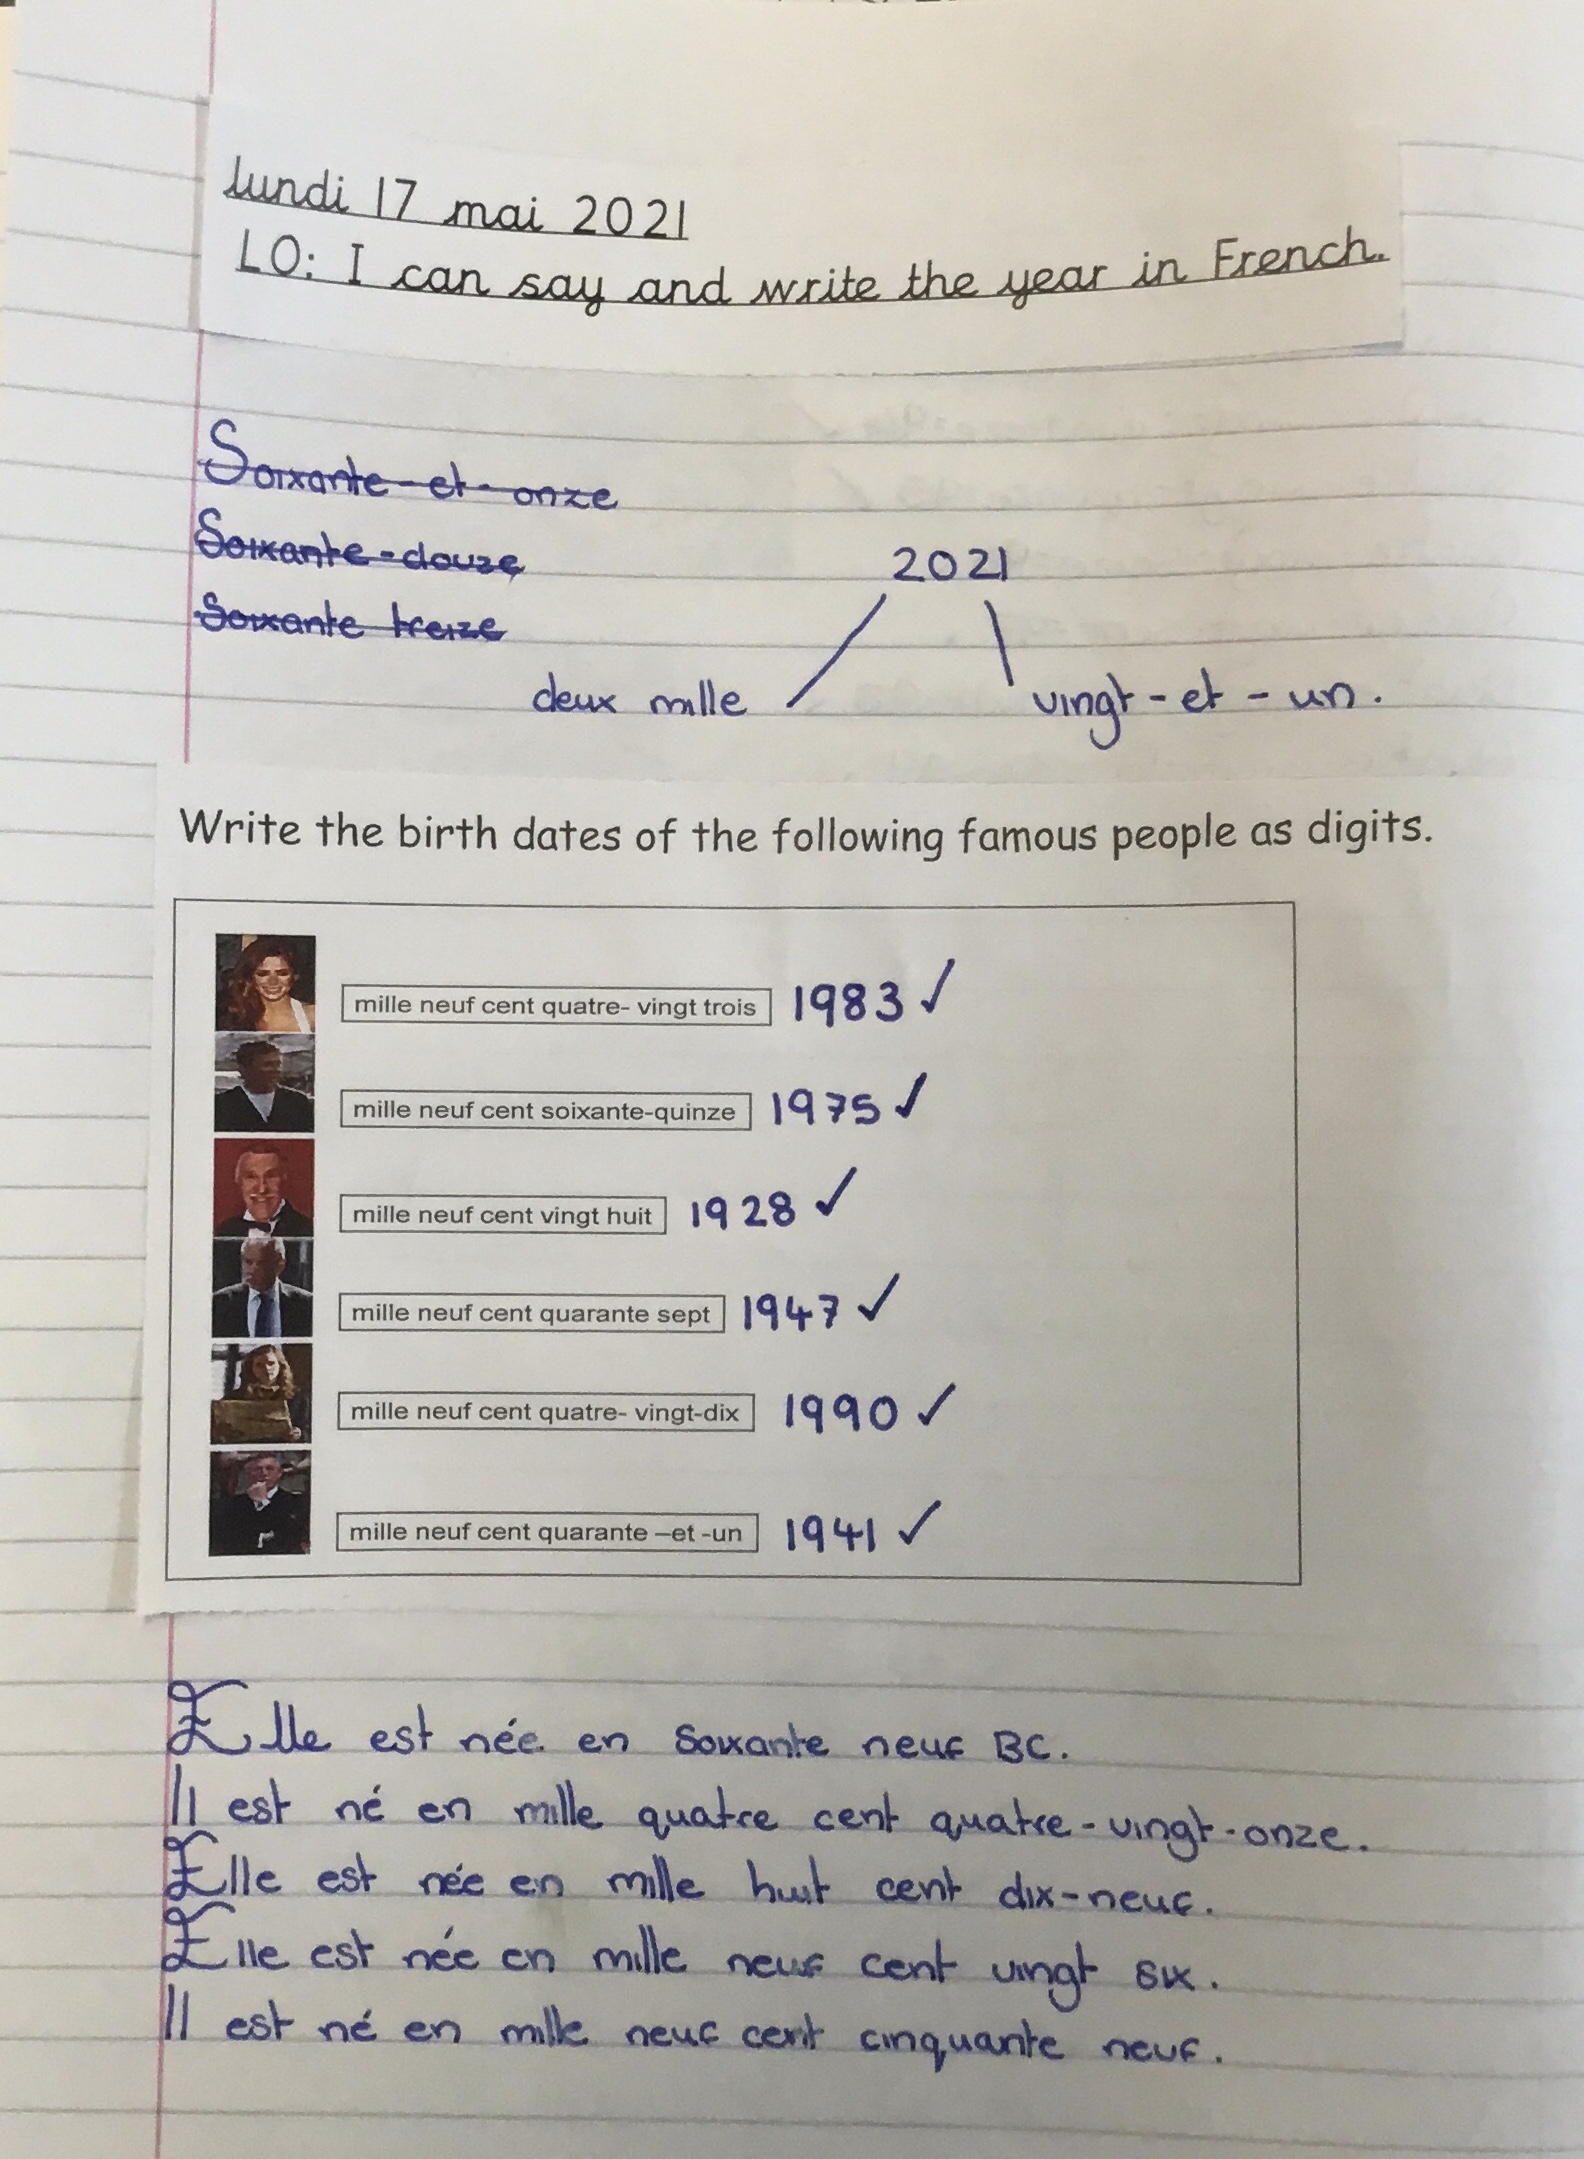 lundi 17 mai 2021
LO: I can say and write the year in French.
Soixante-et-onze
Soixante-douze
2021
Soixante treize
deux mille vingt-et-un.
Write the birth dates of the following famous people as digits.
mille neuf cent quatre- vingt trois 1983 ✓
mille neuf cent soixante-quinze 1975 ✓
mille neuf cent vingt huit 1928 ✓
mille neuf cent quarante sept 1947 ✓
mille neuf cent quatre- vingt-dix 1990 ✓
mille neuf cent quarante –et -un 1941 ✓
Elle est née en soixante neuf BC.
Il est né en mille quatre cent quatre-vingt-onze.
Elle est née en mille huit cent dix-neuf.
Elle est née en mille neuf cent vingt six.
Il est né en mille neuf cent cinquante neuf.